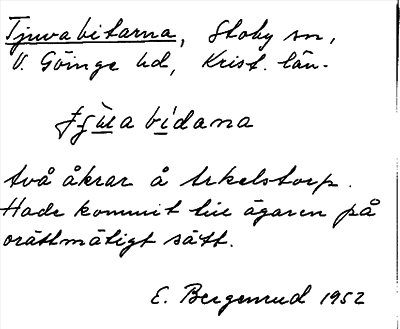 Tjuvabitarna, Stoby sn,
V. Göinge hd, Krist. län.
bidana
två åkrar å Arkelstorp.
Hade kommit till ägaren på
orättmätigt sätt.
E. Bergenrud 1952